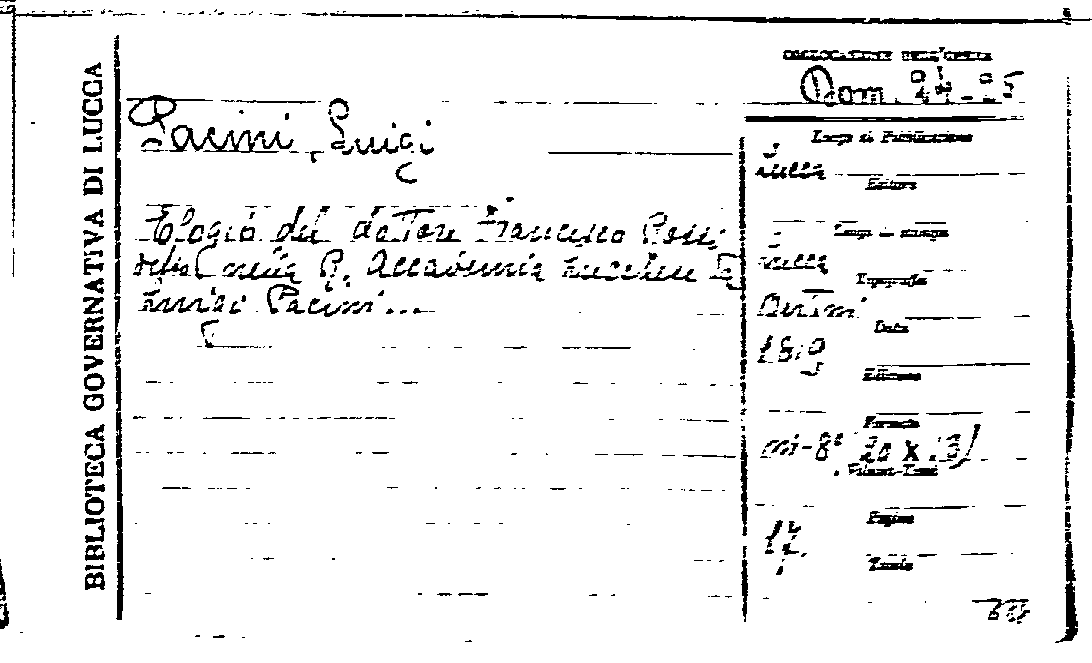 BIBLIOTECA GOVERNATIVA DI LUCCA
COLLOCAZIONE DELL'OPERA
Dom. 24-25
Pacini, Luigi
Elogio del dottore Francesco Rossi
nella R. Accademia Lucchese
Luigi Pacini...
Luogo di Pubblicazione
Lucca
Editore
Luogo di stampa
Lucca
Tipografia
Bertini
Data
1819
Edizione
Formato
in-8° 20 x 13)
Volumi-Tomi
Pagine
17.
Tavole